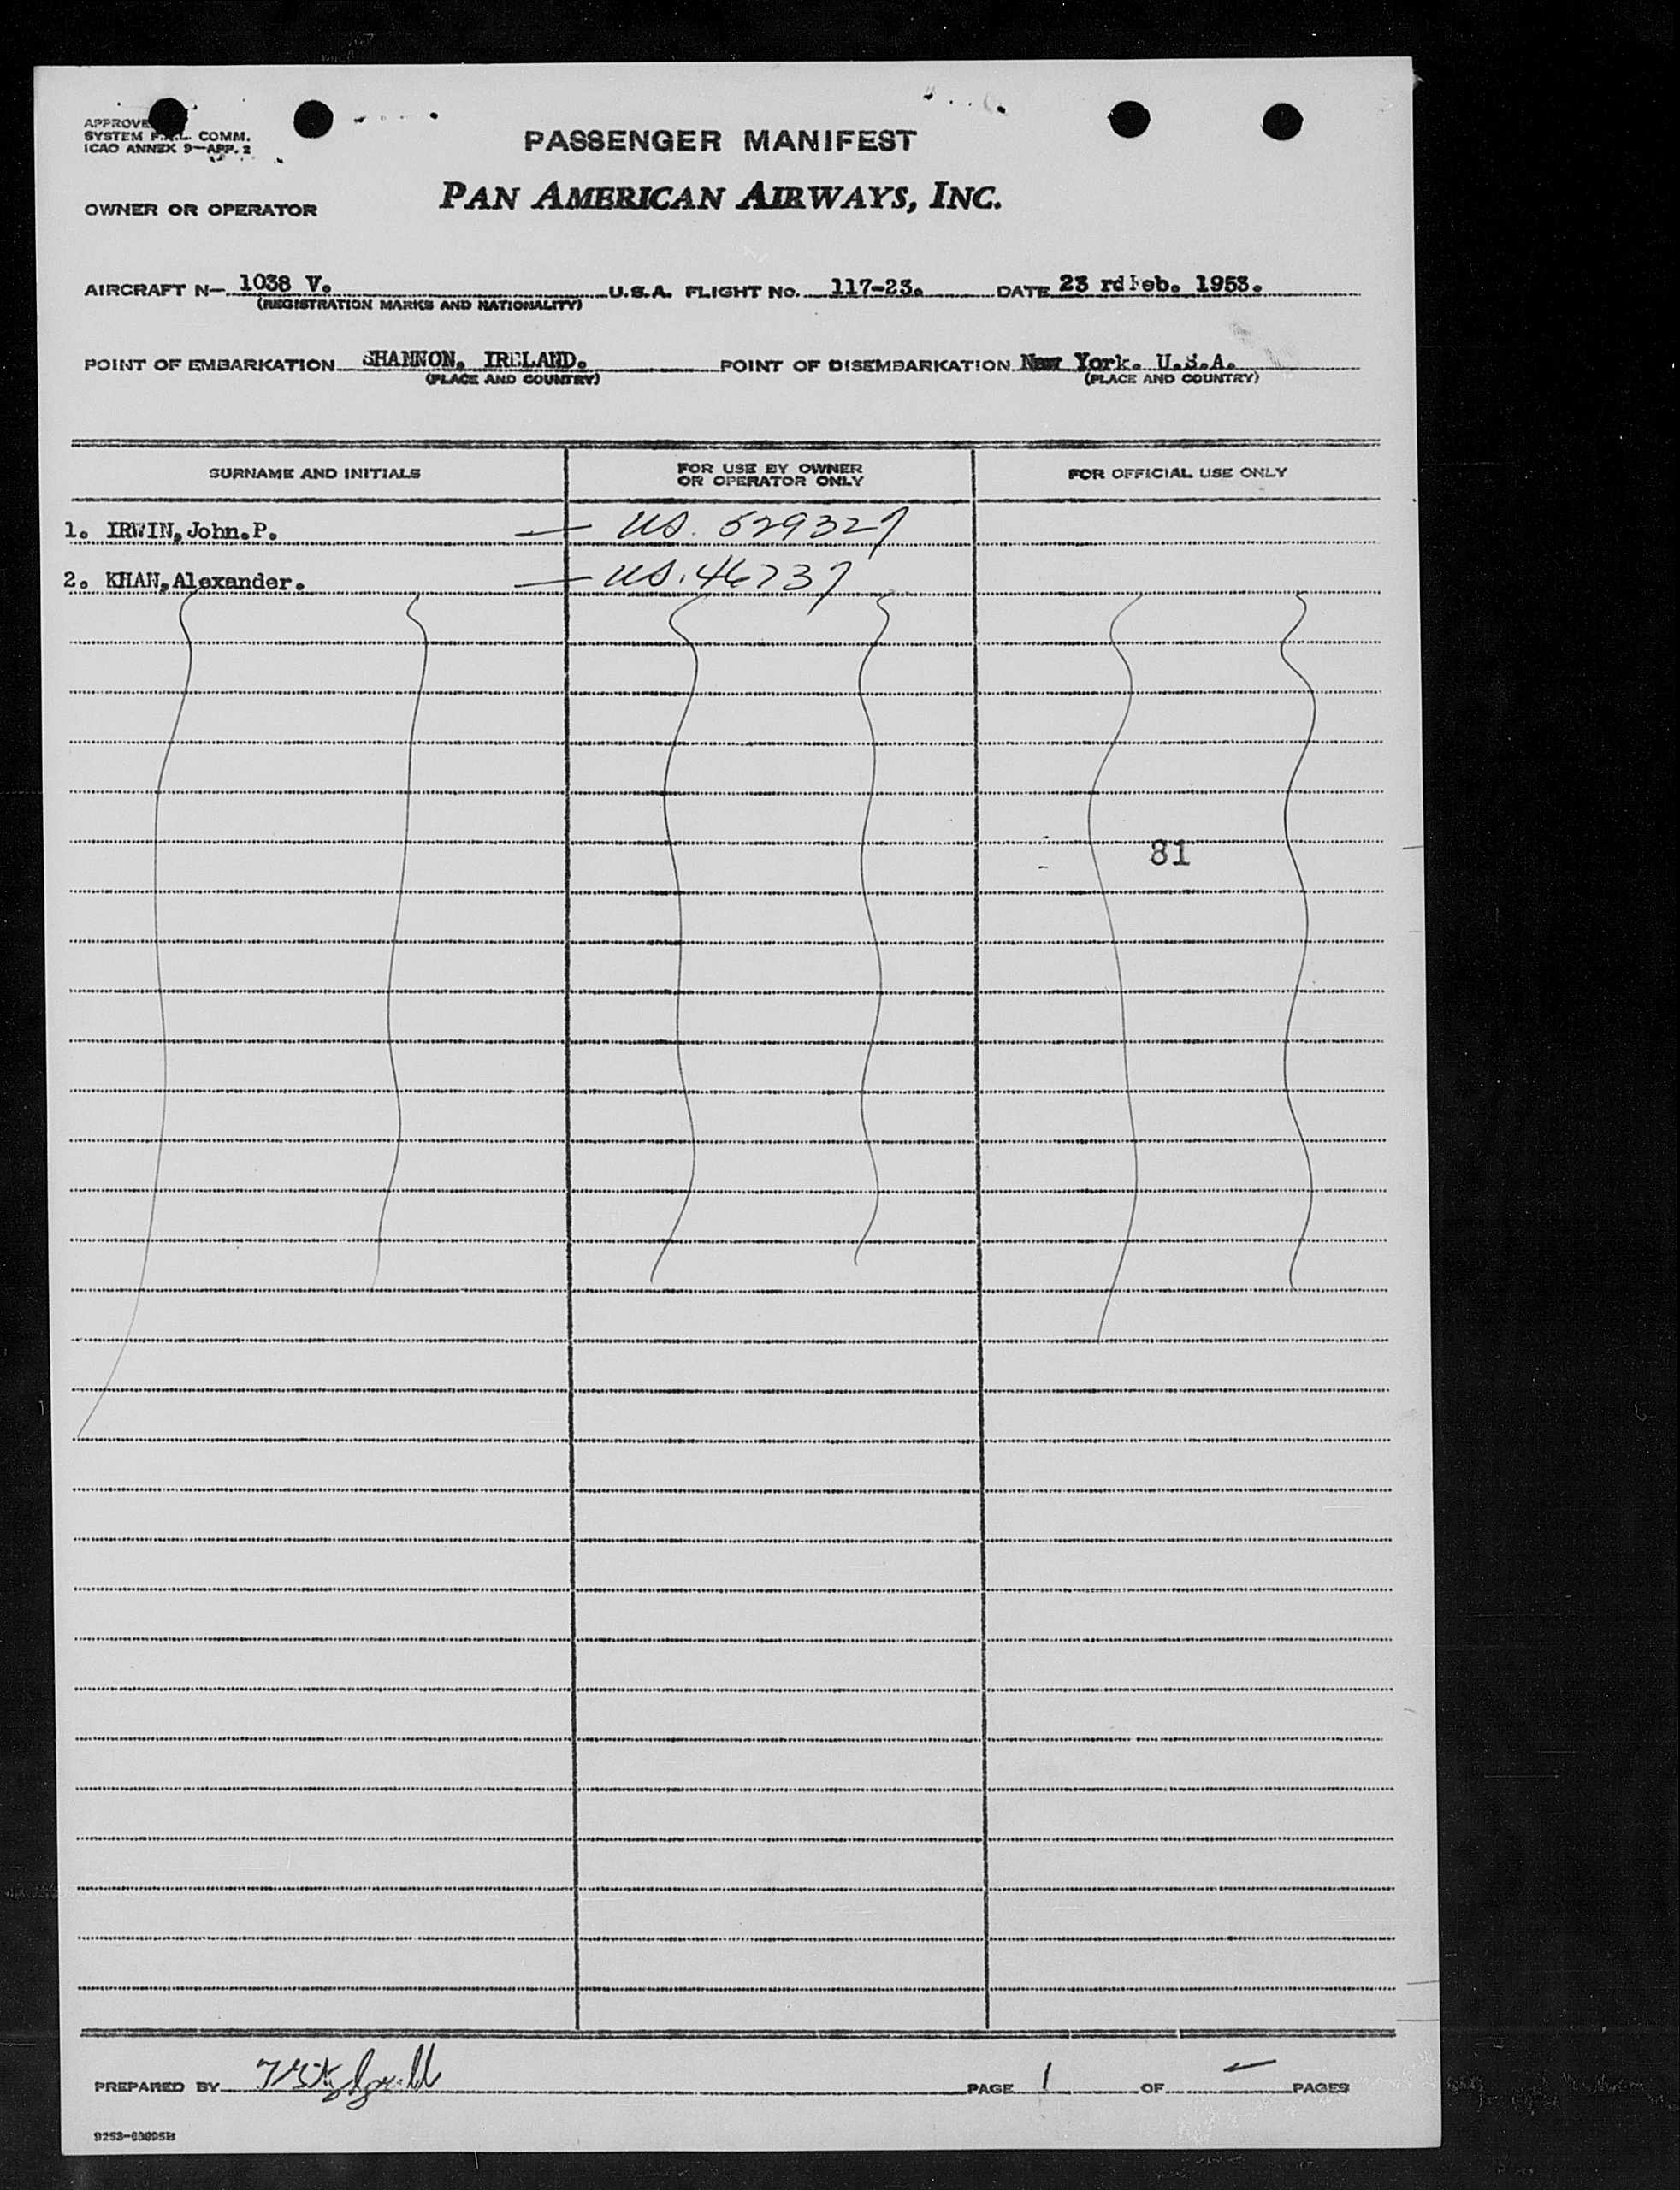 APPROVE
SYSTEM F.A.L. COMM.
ICAO ANNEX 9—APP. 2
PASSENGER MANIFEST
OWNER OR OPERATOR PAN AMERICAN AIRWAYS, INC.
AIRCRAFT N— 1038 V. U.S.A. FLIGHT No. 117-23. DATE 23 rd Feb. 1953.
(REGISTRATION MARKS AND NATIONALITY)
POINT OF EMBARKATION SHANNON, IRELAND. POINT OF DISEMBARKATION New York. U.S.A.
(PLACE AND COUNTRY) (PLACE AND COUNTRY)
SURNAME AND INITIALS FOR USE BY OWNER OR OPERATOR ONLY FOR OFFICIAL USE ONLY
1. IRWIN, John.P. — US. 529327
2. KHAN, Alexander. — US. 46737
81
PREPARED BY PAGE 1 OF PAGES